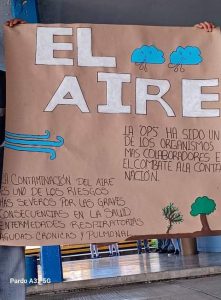 EL
AIRE
LA "OPS" HA SIDO UN
DE LOS ORGANISMOS
MAS COLABORADORES E
EL COMBATE A LA CONTA
NACIÓN.
A CONTAMINACIÓN DEL AIRE
ES UNO DE LOS RIESGOS
MAS SEVEROS POR LAS GRAVES
CONSECUENCIAS EN LA SALUD
ENFERMEDADES RESPIRATORIAS
AGUDAS CRONICAS Y PULMONAL
Pardo A3 5G